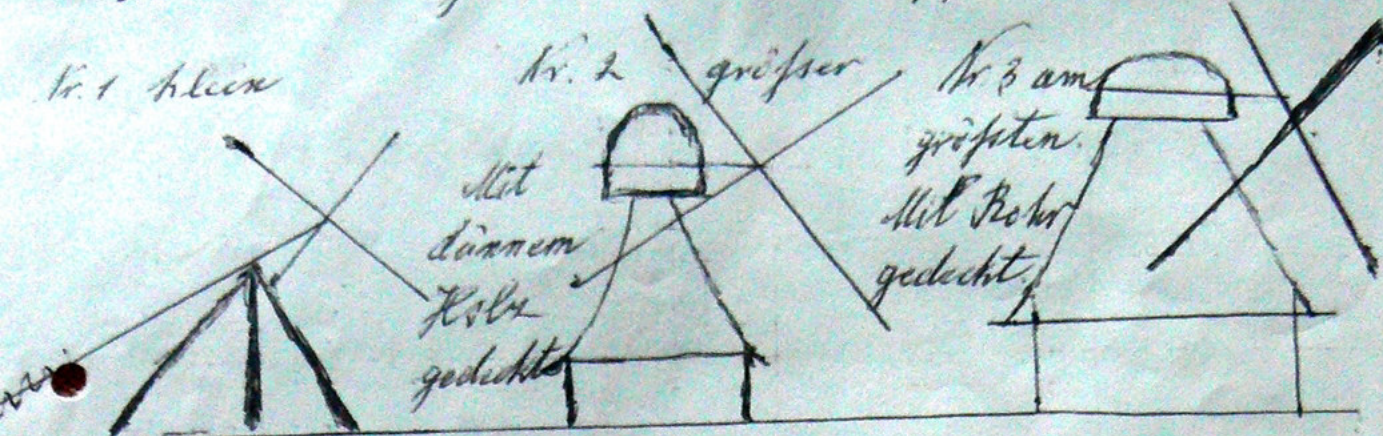 Nr. 1 klein
Nr. 2 größer
Mit
dünnem
Holz
gedeckt
Nr. 3 am
größten.
Mit Rohr
gedeckt.